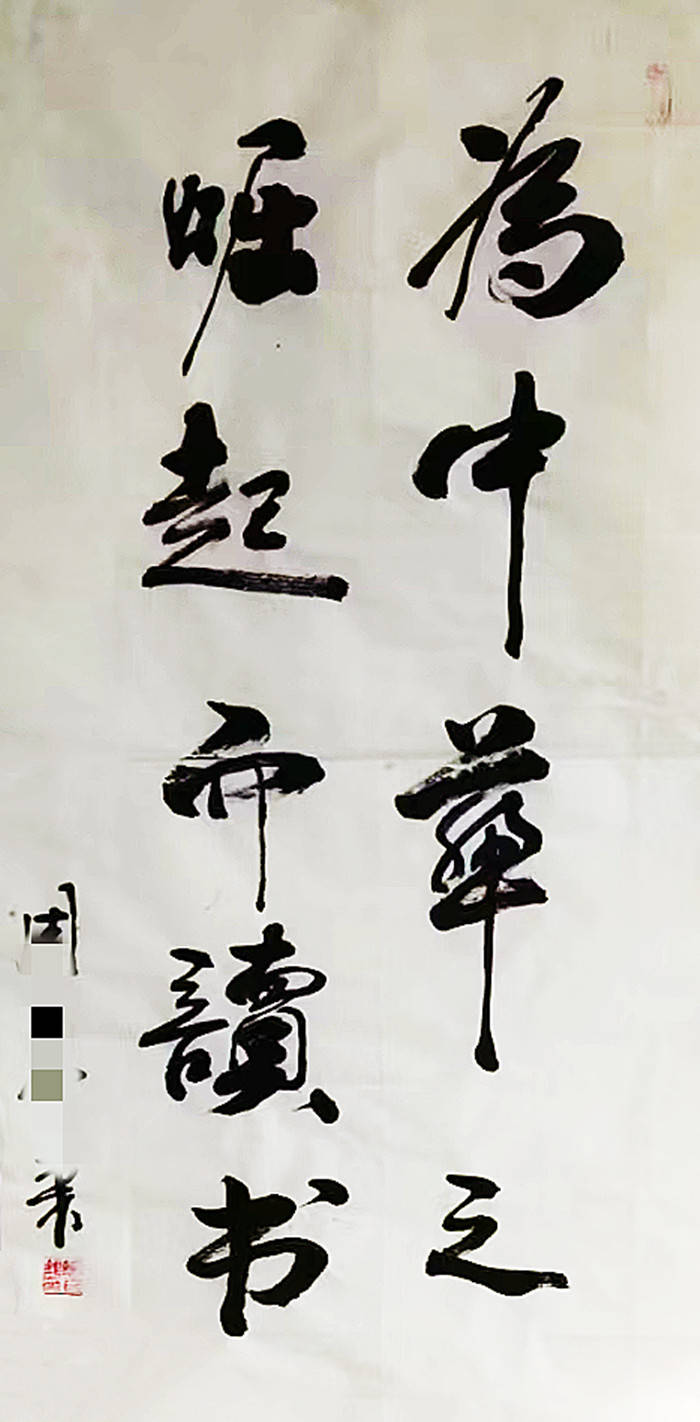 為中華之
崛起而讀书
周